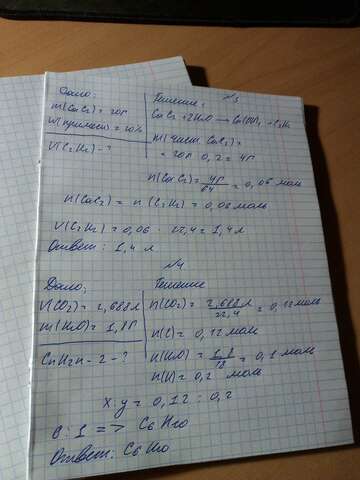 Дано:
m(CaC2) = 20г
W(примеси) = 20%
V(C2H2) - ?
Решение: №3
CaC2 + 2H2O → Ca(OH)2 + C2H2
m(чист. CaC2) =
= 20г 0,2 = 4г
n(CaC2) = 4г/64 = 0,06 моль
n(CaC2) = n(C2H2) = 0,06 моль
V(C2H2) = 0,06 · 22,4 = 1,4 л
Ответ: 1,4 л
№4
Дано:
V(CO2) = 2,688 л
m(H2O) = 1,8г
CnH2n-2 - ?
Решение
n(CO2) = 2,688л/22,4 = 0,12 моль
n(C) = 0,12 моль
n(H2O) = 1,8/18 = 0,1 моль
n(H) = 0,2 моль
x:y = 0,12 : 0,2
6:1 => C6H10
Ответ: C6H10